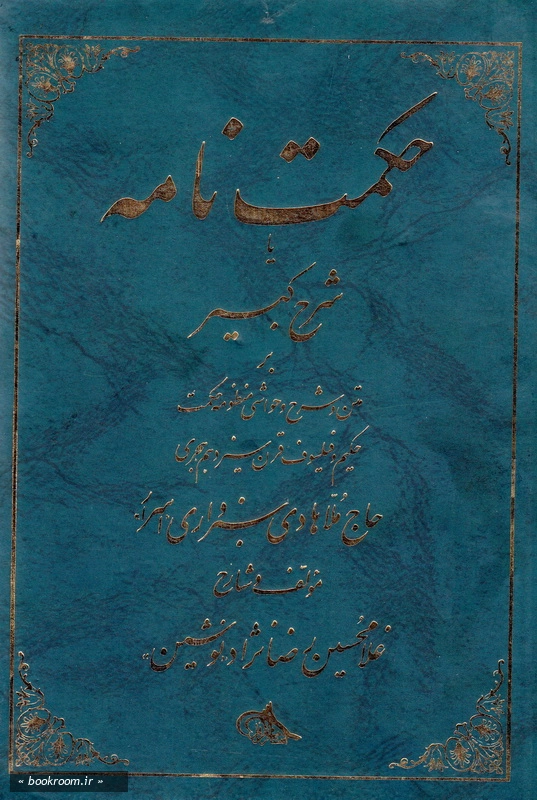 حکمت نامه
یا
شرح کبیر
بر
متن و شرح و حواشی منظومه حکمت
حکیم و فیلسوف قرن سیزدهم هجری
حاج مُلّا هادی سبزواری «اسرار»
مؤلف و شارح
غلامحسین رضانژاد «نوشین»
« bookroom.ir »